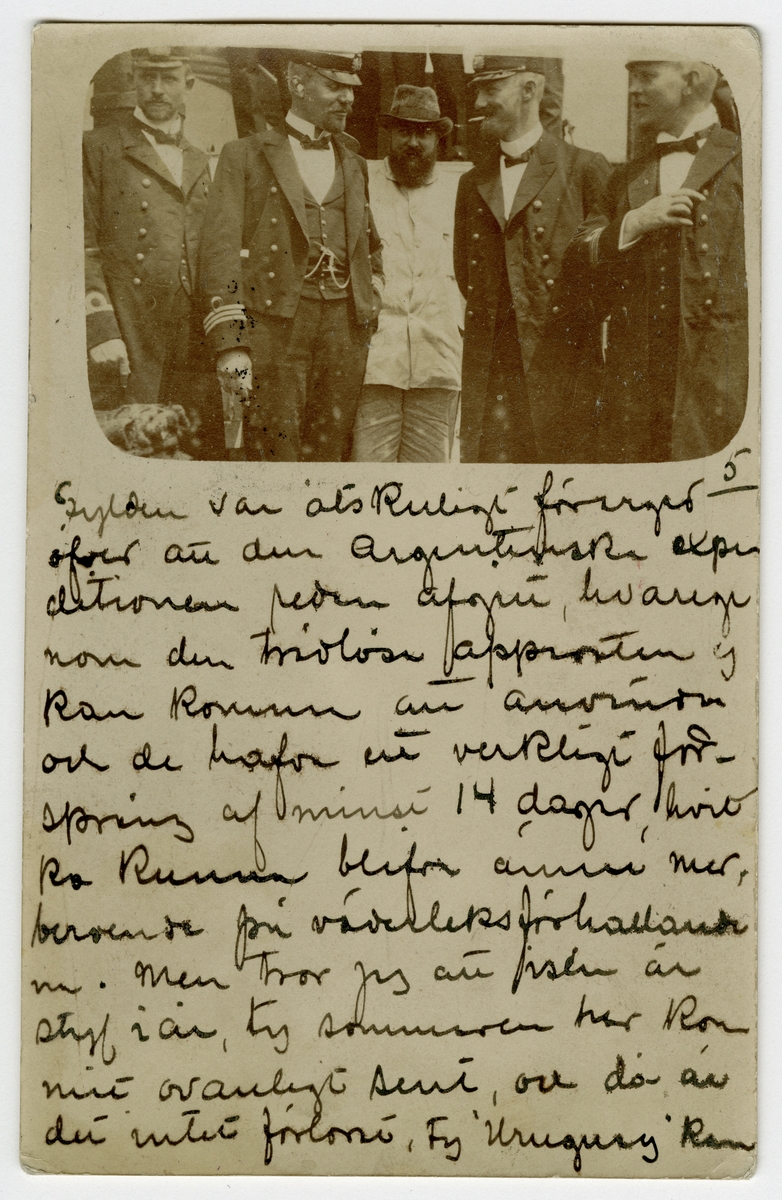 5
Gylden var otskuligt förargad
öfver att den Argentinska expe
ditionen redan afgått, hvarige
nom den trådlösa apparaten ej
kan komma att användas
och de hafva ett verkligt för-
språng af minst 14 dagar, hvil
ka kunna blifva ännu mer,
beroende på väderleksförhållande
na. Men tror jag att isen är
styf i år, ty sommaren har kom
mit ovanligt sent, och då är
det intet förlorat, ty "Uruguay" kan